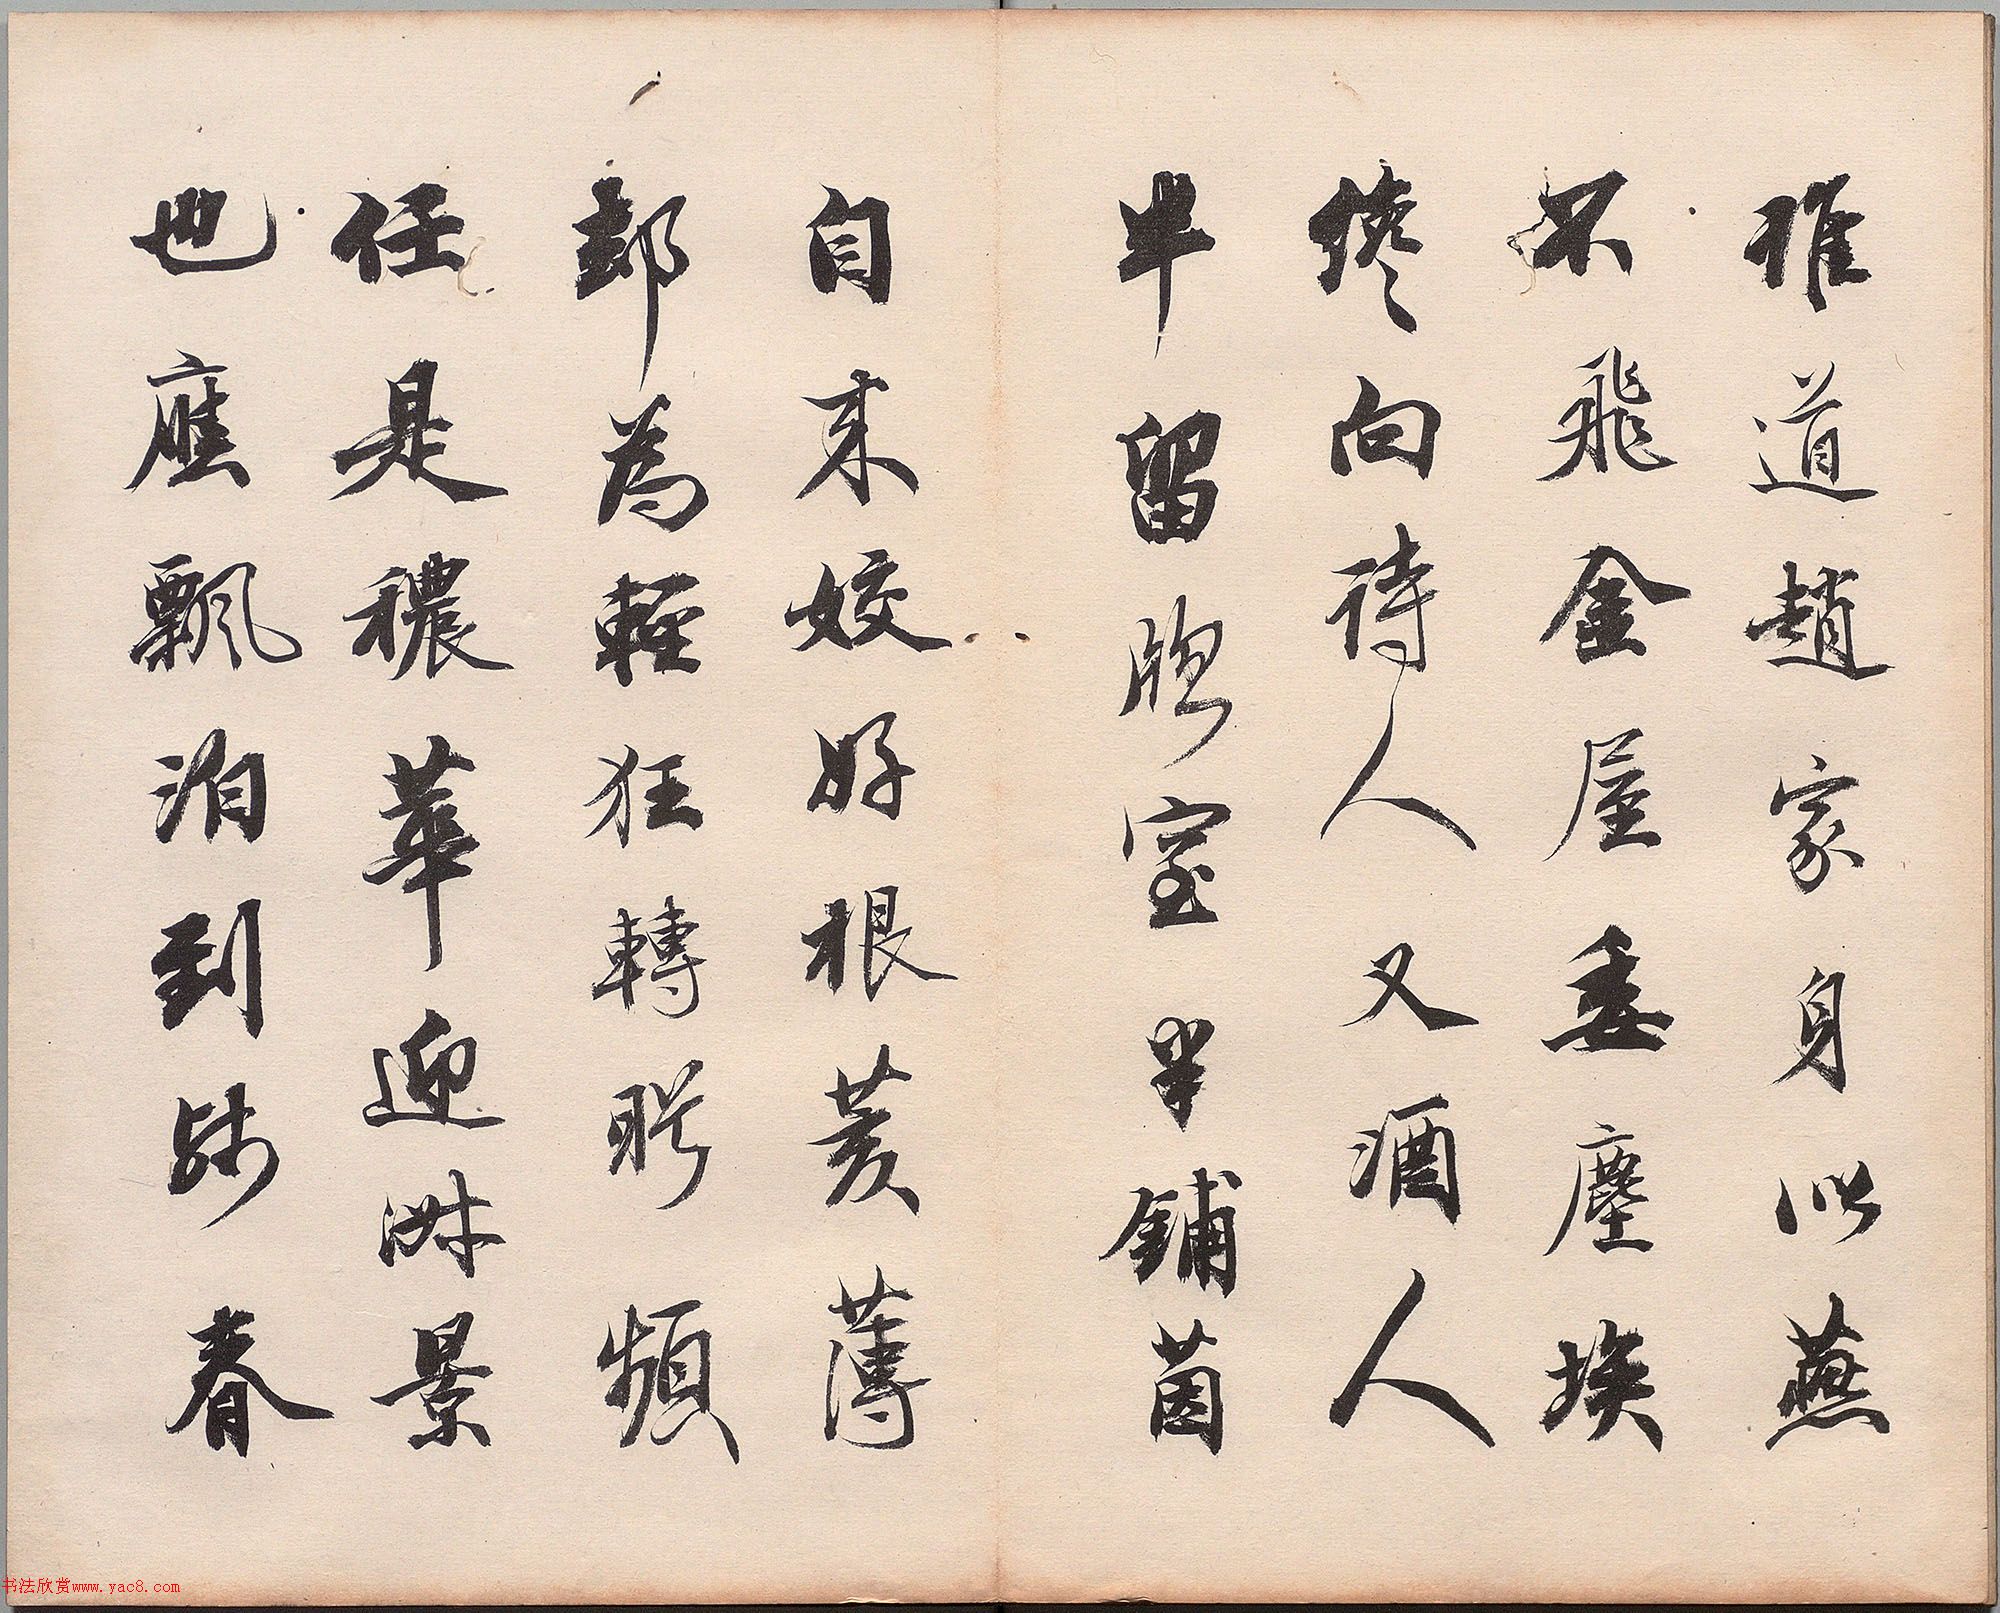 誰道趙家身似燕
不飛金屋委塵埃
纔向詩人又酒人
半留室半鋪茵
自来姣好根荄薄
却為輕狂轉眄頻
任是穠華迎淑景
也應飄泊到殘春
书法欣赏www.yac8.com